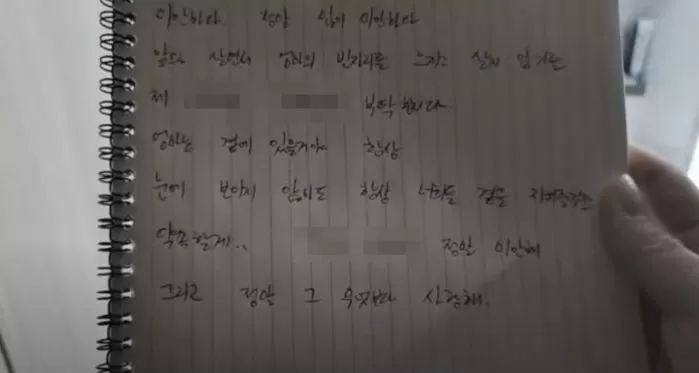 미안하다 정말 많이 미안하다
앞으로 살면서 엄마의 빈자리를 느끼고 살지 않기를
제 부탁합니다
엄마는 곁에 있을거야 항상
눈에 보이지 않아도 항상 너희들 곁을
약속할게.. 정말 미안해
그리고 정말 그 무엇보다 사랑해.